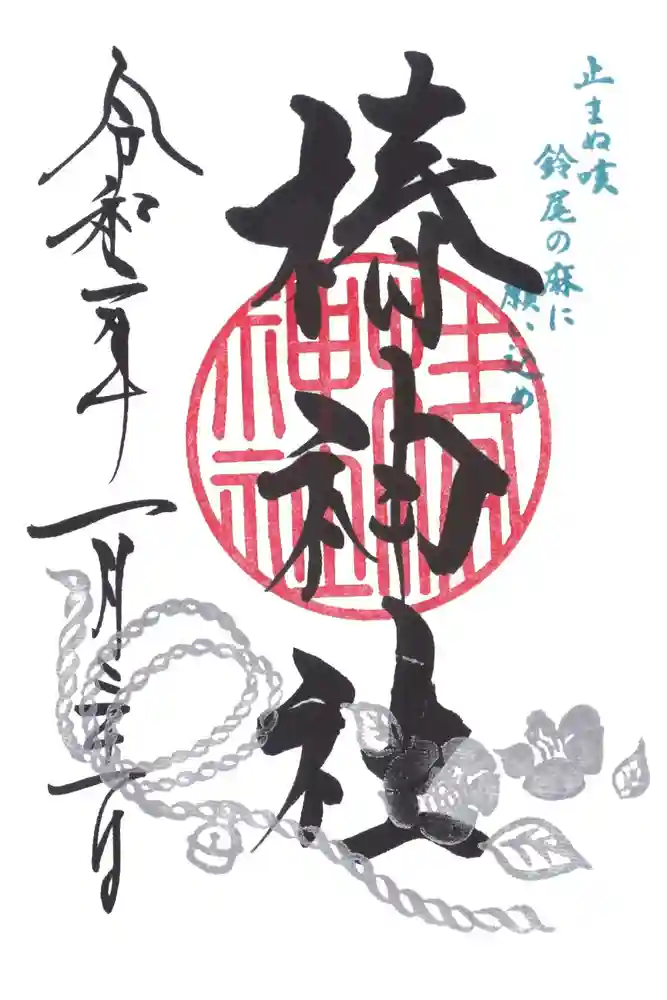 止まぬ咳
鈴尾の麻に
願い込め
椿神社
令和二年一月二十一日